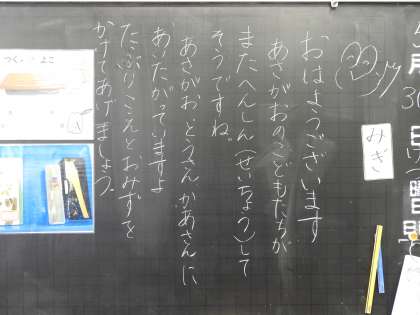 月
30
日
曜日
みぎ
おはようございます
あさがおのこどもたちが
またへんしん(せいちょう)して
そうですね。
あさがおとうさん、かあさんに
あいたがっていますよ
たっぷりこえとおみずを
かけてあげましょう。